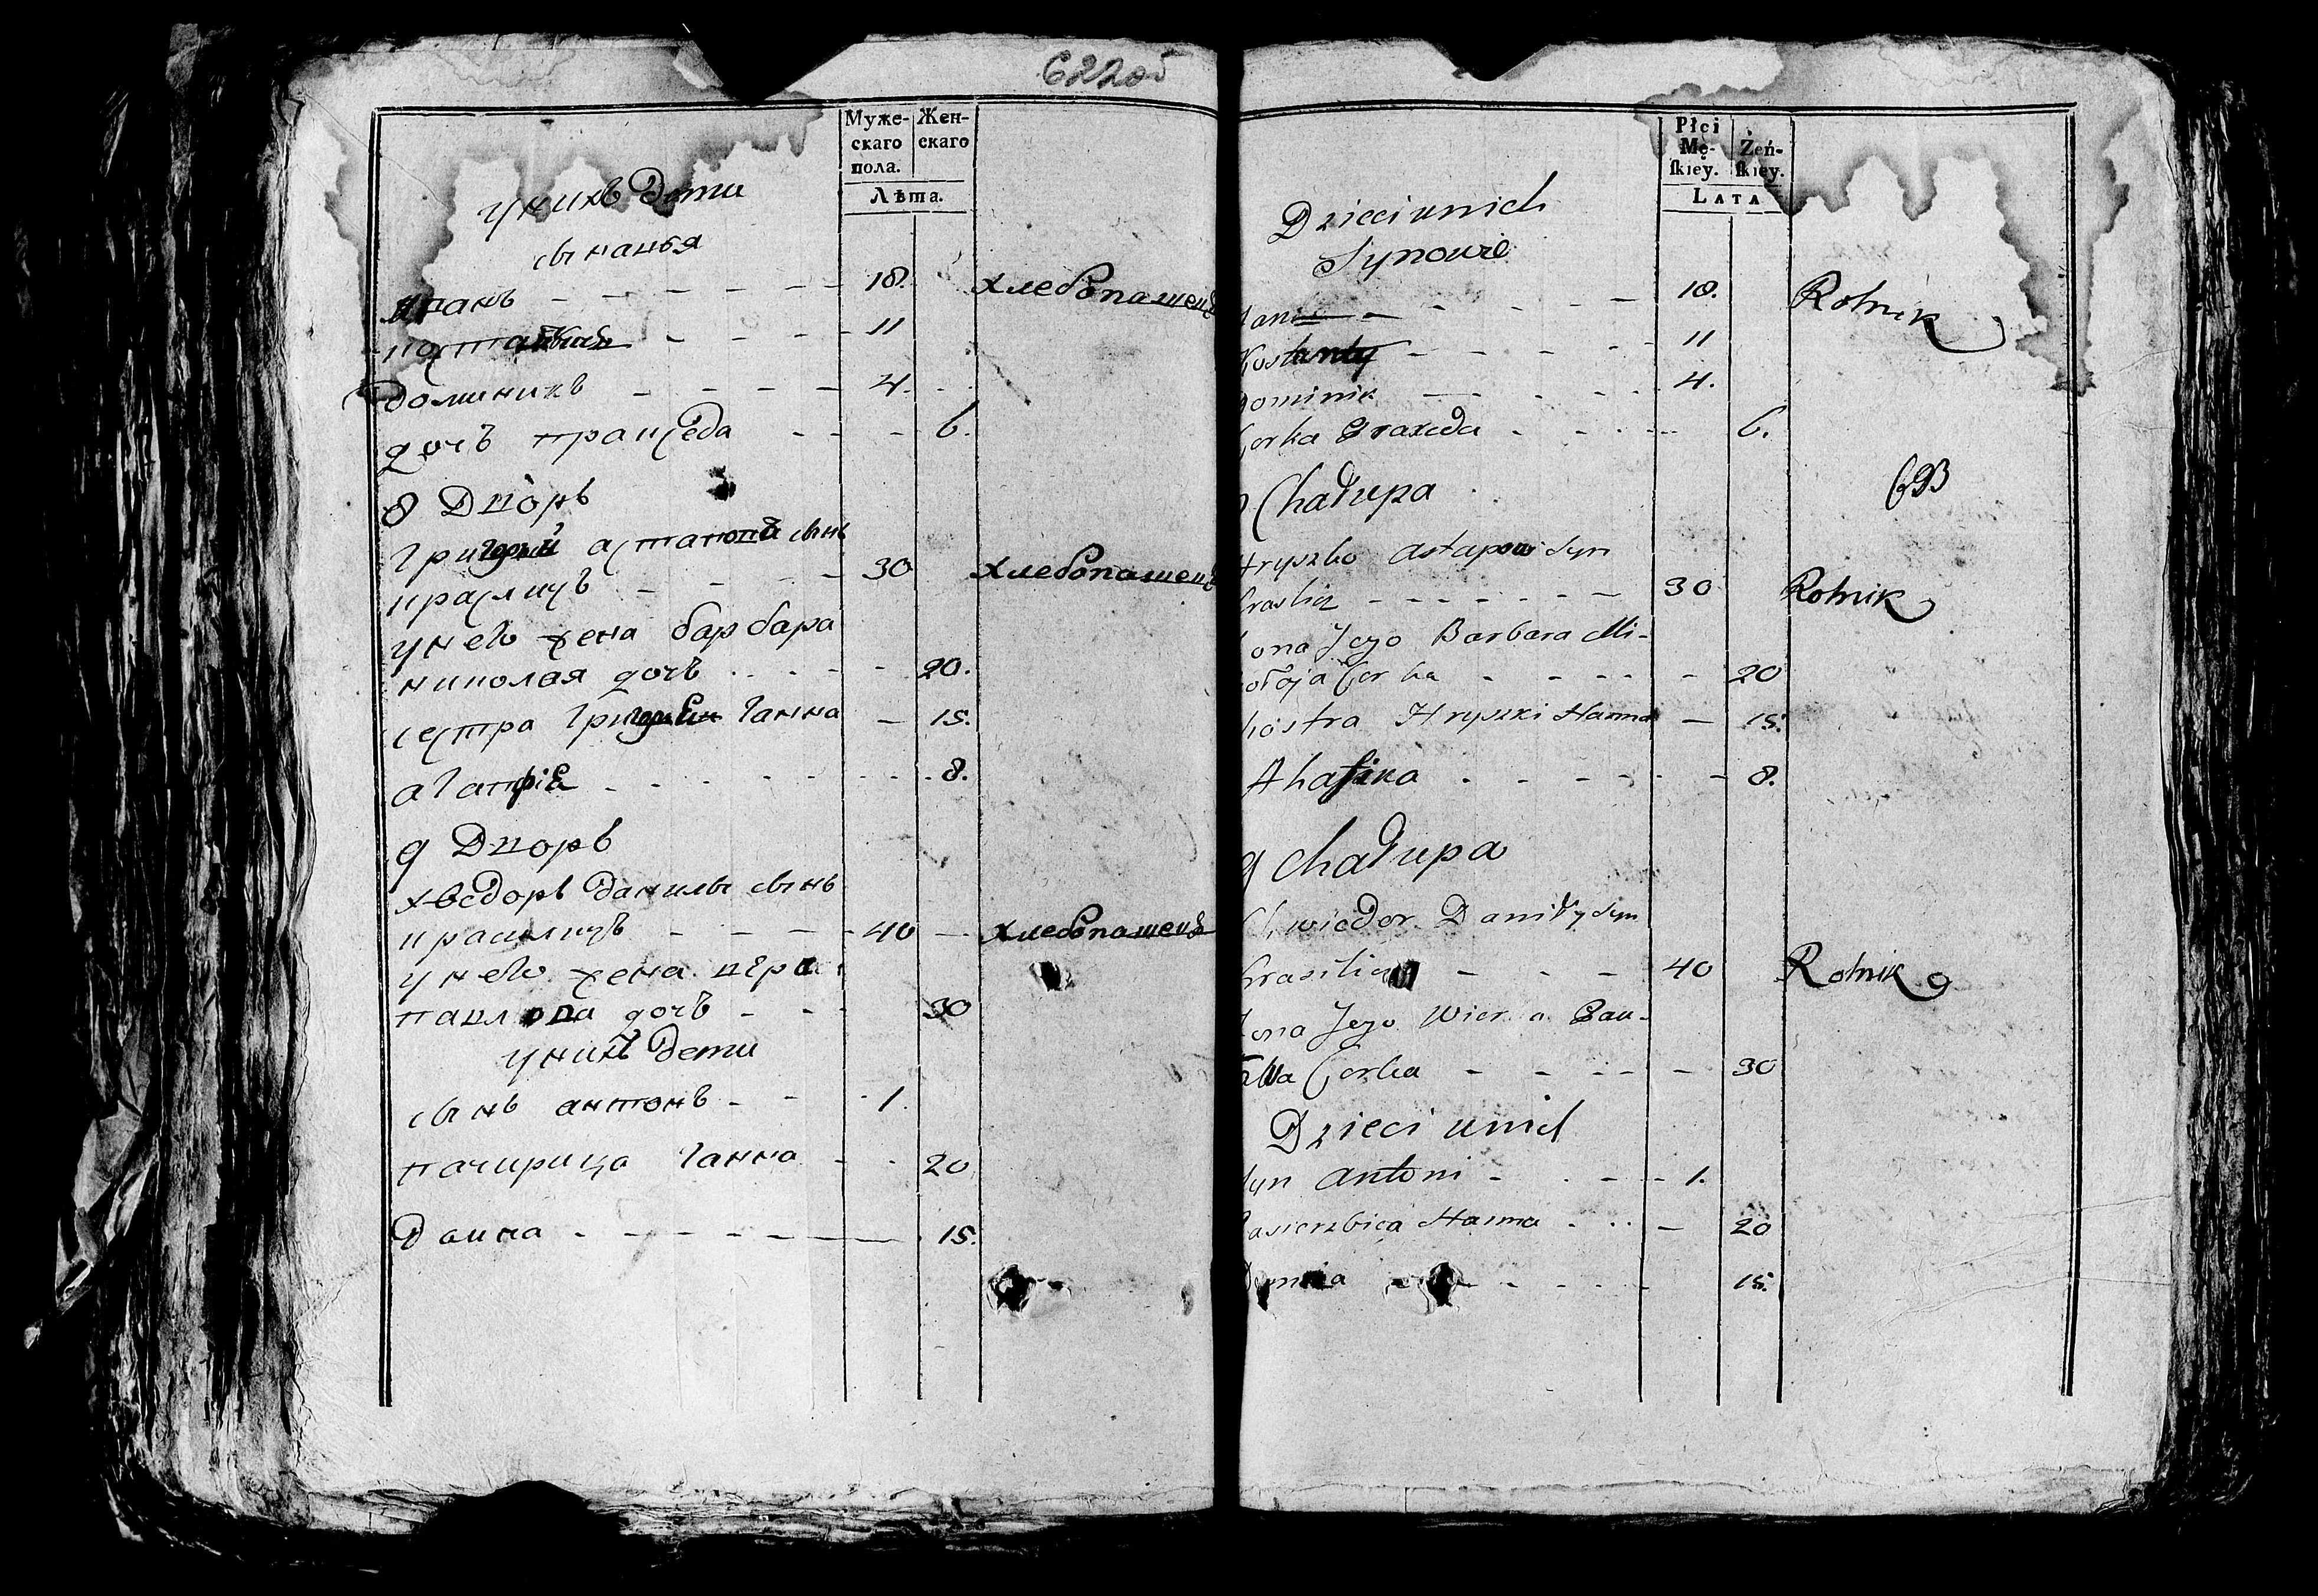 622об
Муже-
скаго
пола.
Жен-
скаго
Лѣта.
у нихъ дети
сынавья
иванъ 18. хлебопашецъ
11
доминикъ 4.
дочъ працеда 6.
8 Дворъ
Григорий астапова сынъ
красицъ 30 хлебопашецъ
у него жена барбара
николая дочъ 20.
сестра Григория Ганна 15.
агапфіа 8.
9 Дворъ
хведоръ данилы сынъ
красилицъ 40 хлебопашецъ
у него жена вера
павлова дочъ 30
у нихъ дети
сынъ антонъ 1.
пачирица Ганна 20
Домна 15.
Płci
Mę-
skiey.
Żeń-
skiey.
LATA
Dzieci u nich
Synowie
Jan 18. Rolnik
Kostanty 11
Dominik 4.
Corka Praxeda 6.
693
Chałupa
Hryszko Astapow Syn
30 Rolnik
Żona Jego Barbara Mi-
kołaja Corka 20
Siostra Hryszki Hanna 15.
Ahafina 8.
9 Chałupa
Chwiedor Daniły Syn
Krasilicz 40 Rolnik
Żona Jego Wiera Pau-
Corka 30
Dzieci u nich
Syn Antoni 1.
Pasierzbica Hanna 20
Domna 15.